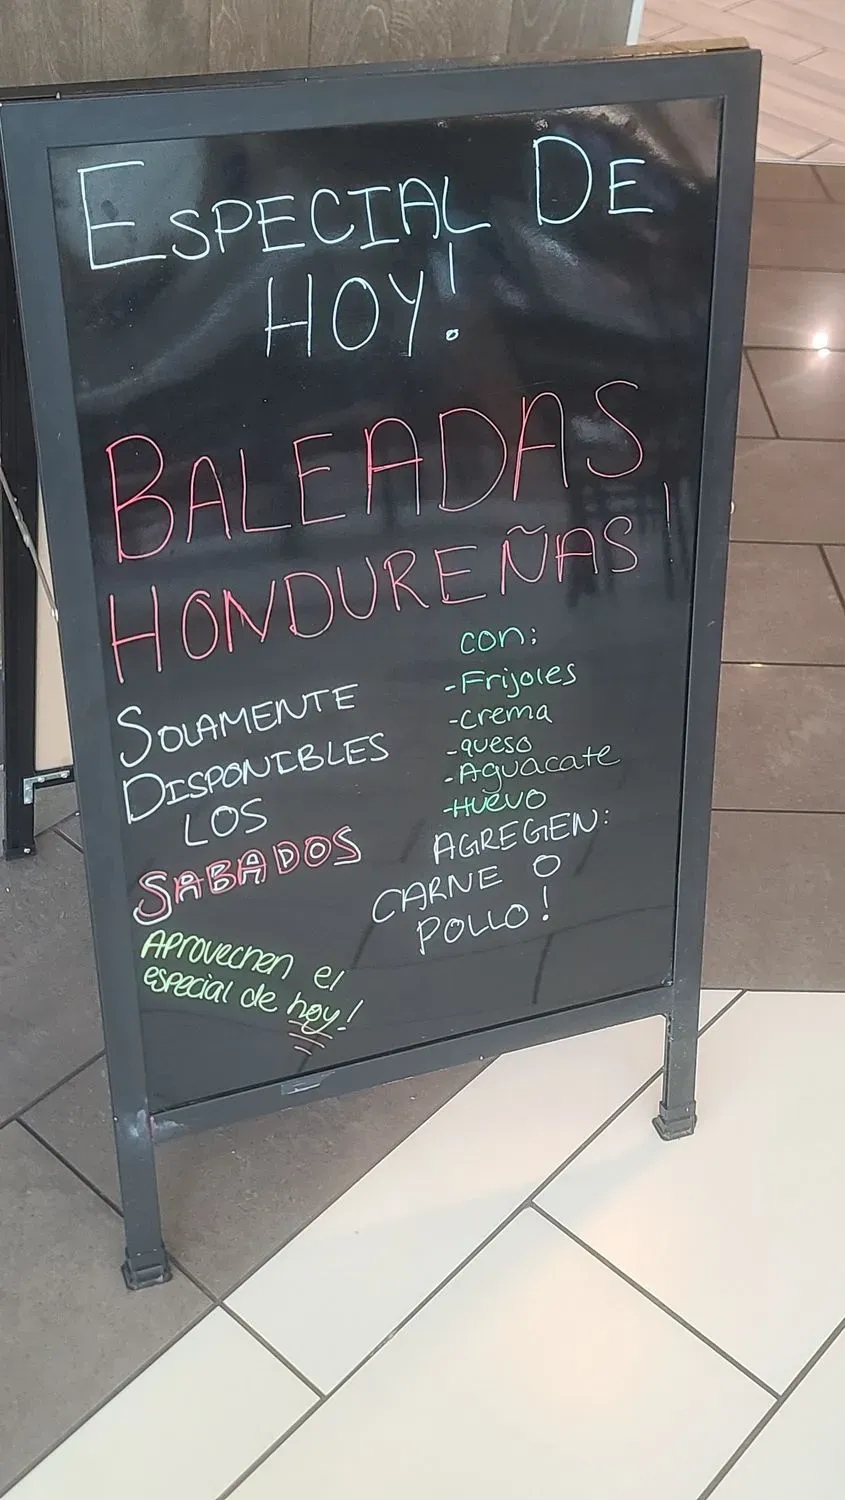 ESPECIAL DE
HOY!
BALEADAS
HONDUREÑAS!
SOLAMENTE
DISPONIBLES
LOS
SABADOS
APROVECHEN el
especial de hoy!
con:
-Frijoles
-crema
-queso
-Aguacate
-HUEVO
AGREGEN:
CARNE O
POLLO!